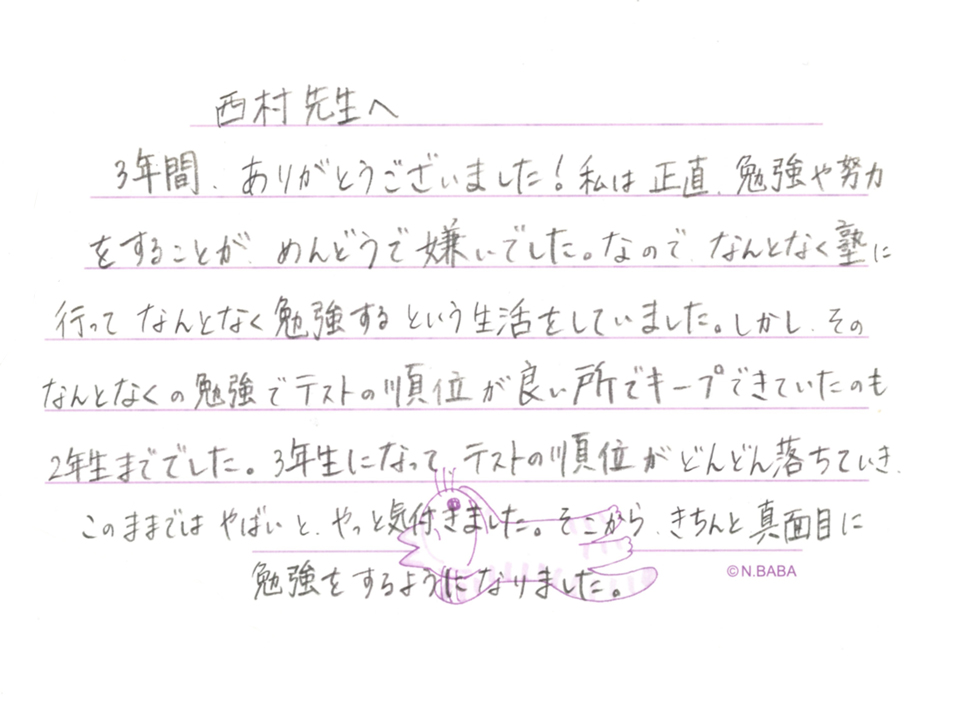 西村先生へ
3年間、ありがとうございました!私は正直、勉強や努力
をすることが、めんどうで嫌いでした。なので、なんとなく塾に
行ってなんとなく勉強するという生活をしていました。しかし、その
なんとなくの勉強でテストの順位が良い所でキープできていたのも
2年生まででした。3年生になって、テストの順位がどんどん落ちていき、
このままではやばいと、やっと気付きました。そこから、きちんと真面目に
勉強をするようになりました。
©N.BABA